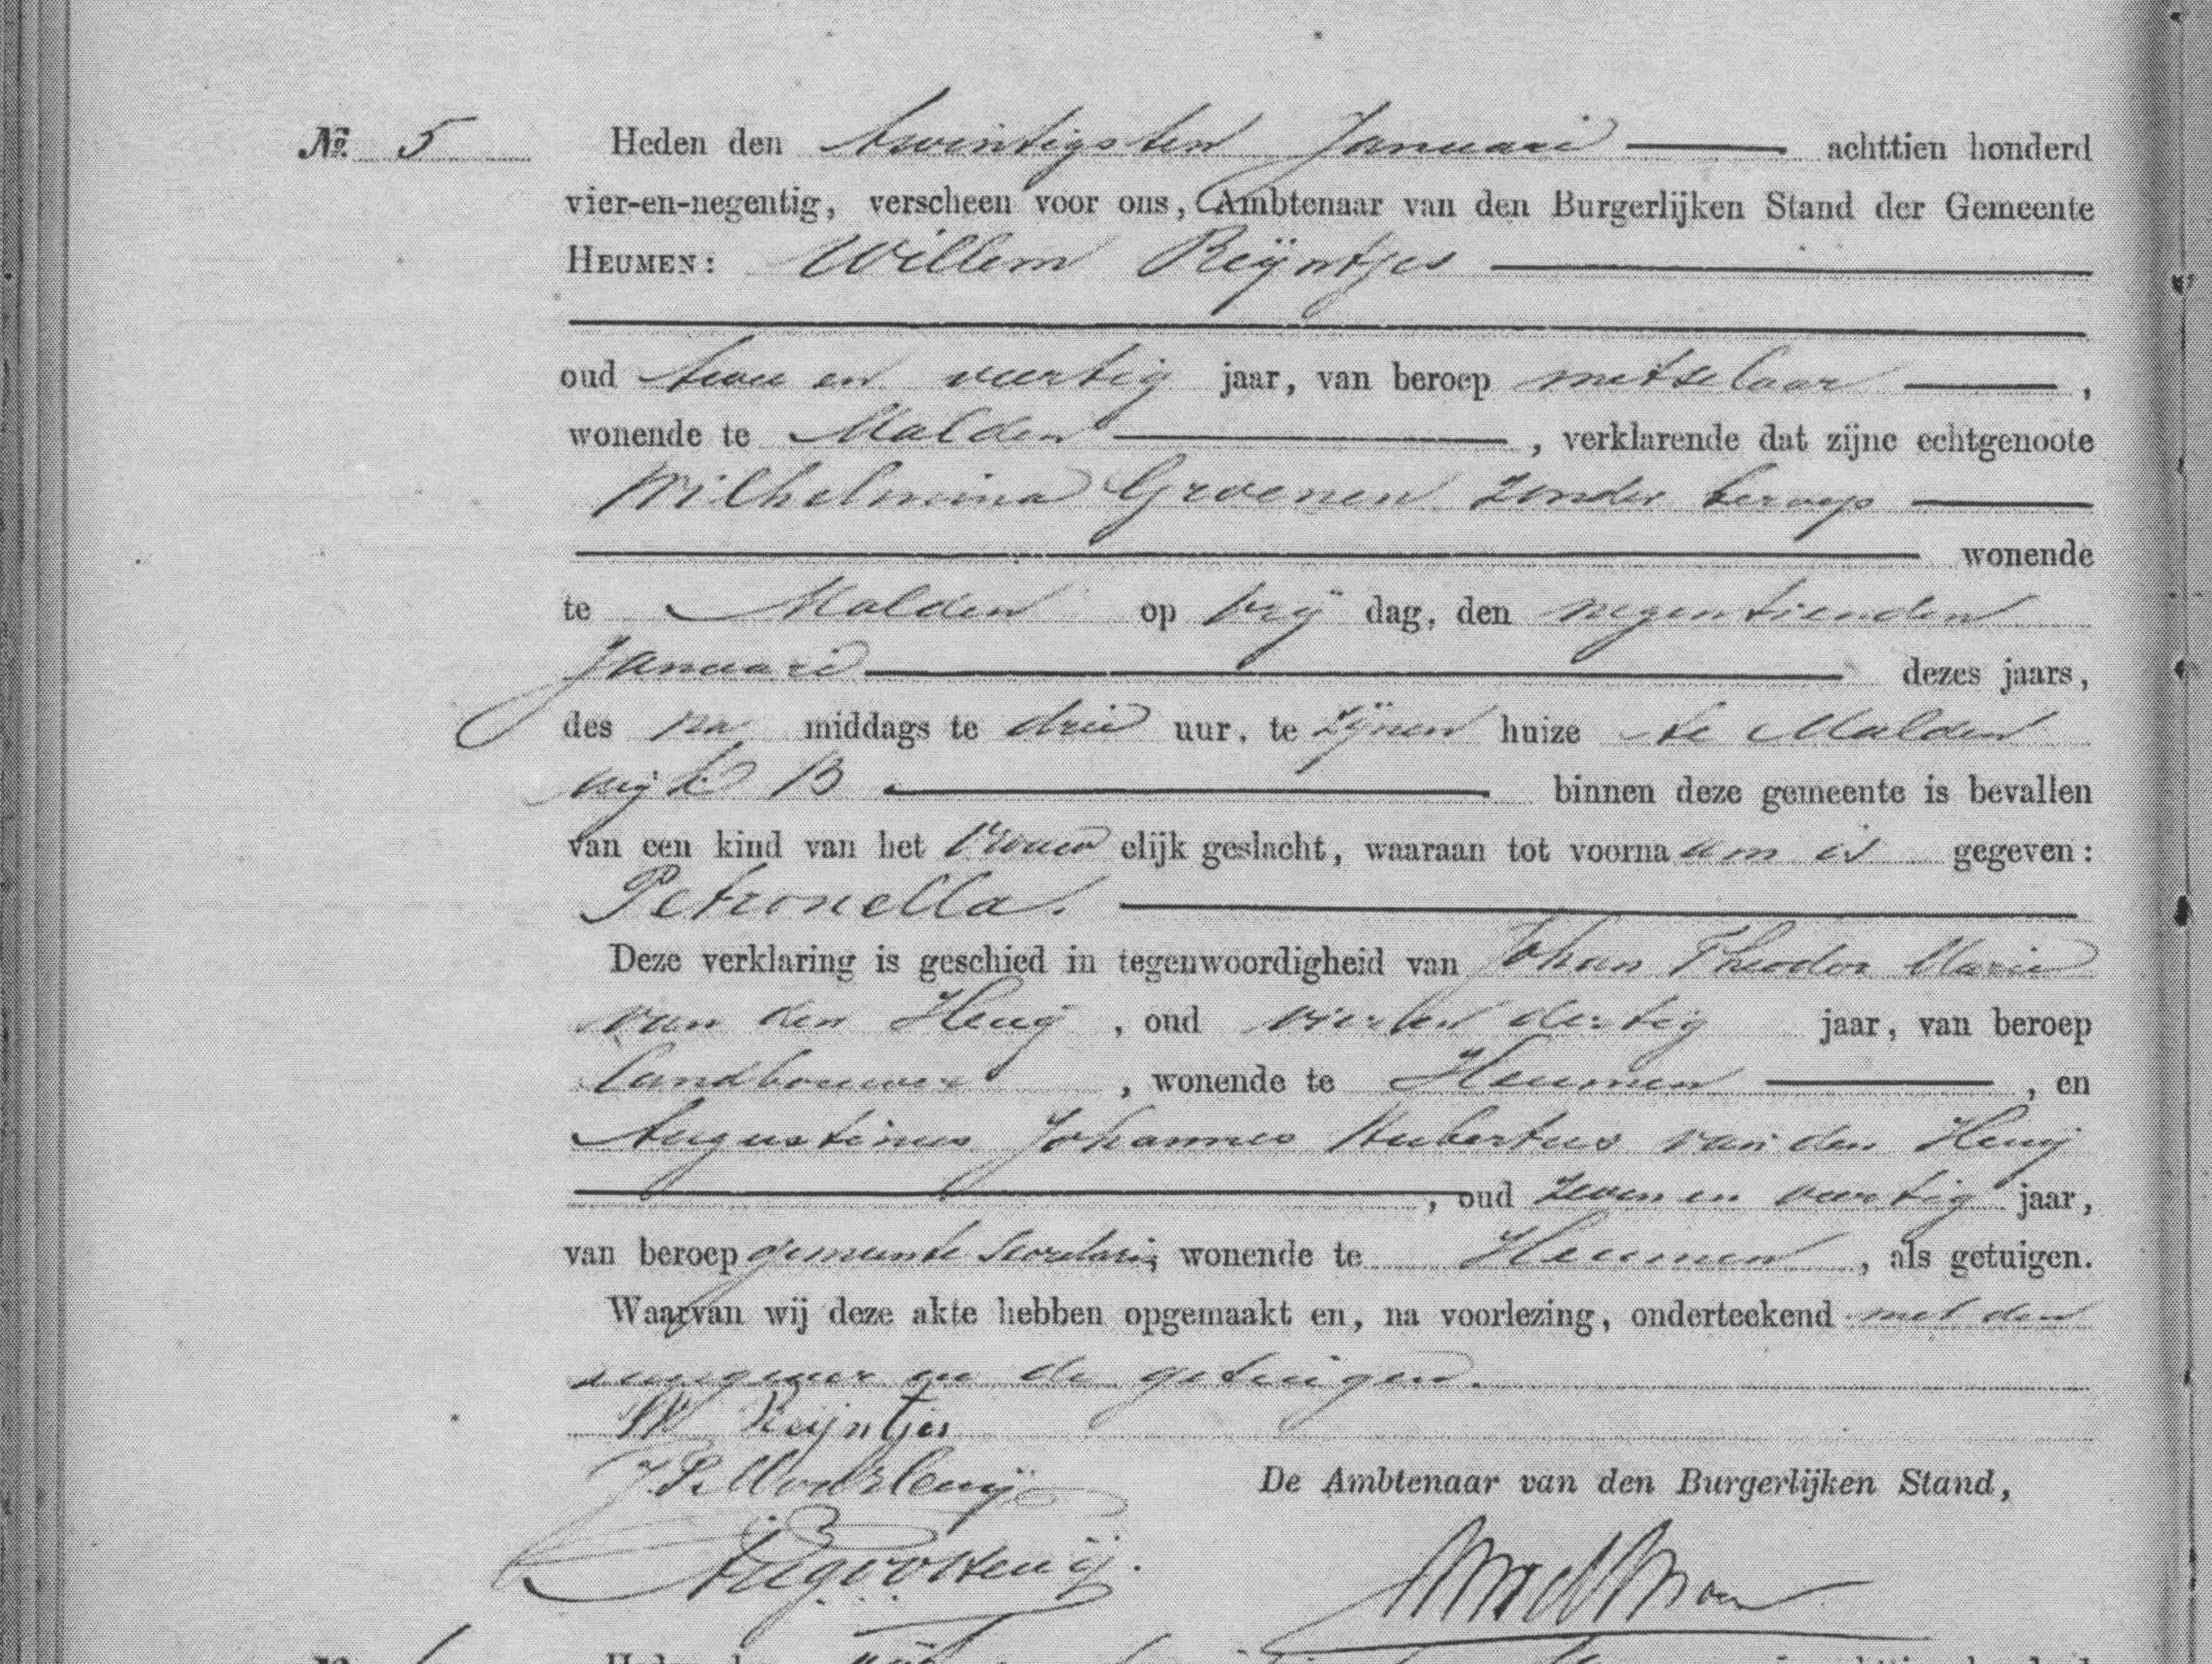 № 5 Heden den twintigsten Januari achttien honderd
vier-en-negentig, verscheen voor ons, Ambtenaar van den Burgerlijken Stand der Gemeente
HEUMEN: Willem Reijntjes
oud twee en veertig jaar, van beroep metselaar,
wonende te Malden, verklarende dat zijne echtgenoote
Wilhelmina Groenen zonder beroep
wonende
te Malden op vrij dag, den negentienden
Januari dezes jaars,
des na middags te drie uur, te zijnen huize te Malden
wijk B binnen deze gemeente is bevallen
van een kind van het vrouw elijk geslacht, waaraan tot voorna am is gegeven:
Petronella.
Deze verklaring is geschied in tegenwoordigheid van Johan Theodor Marie
van den Heuij, oud vier en dertig jaar, van beroep
landbouwer, wonende te Heumen, en
Augustinus Johannes Hubertus van den Heuij
, oud zeven en veertig jaar,
van beroep gemeente Secretaris, wonende te Heumen, als getuigen.
Waarvan wij deze akte hebben opgemaakt en, na voorlezing, onderteekend met den
aangever en de getuigen.
W Reijntjes
De Ambtenaar van den Burgerlijken Stand,